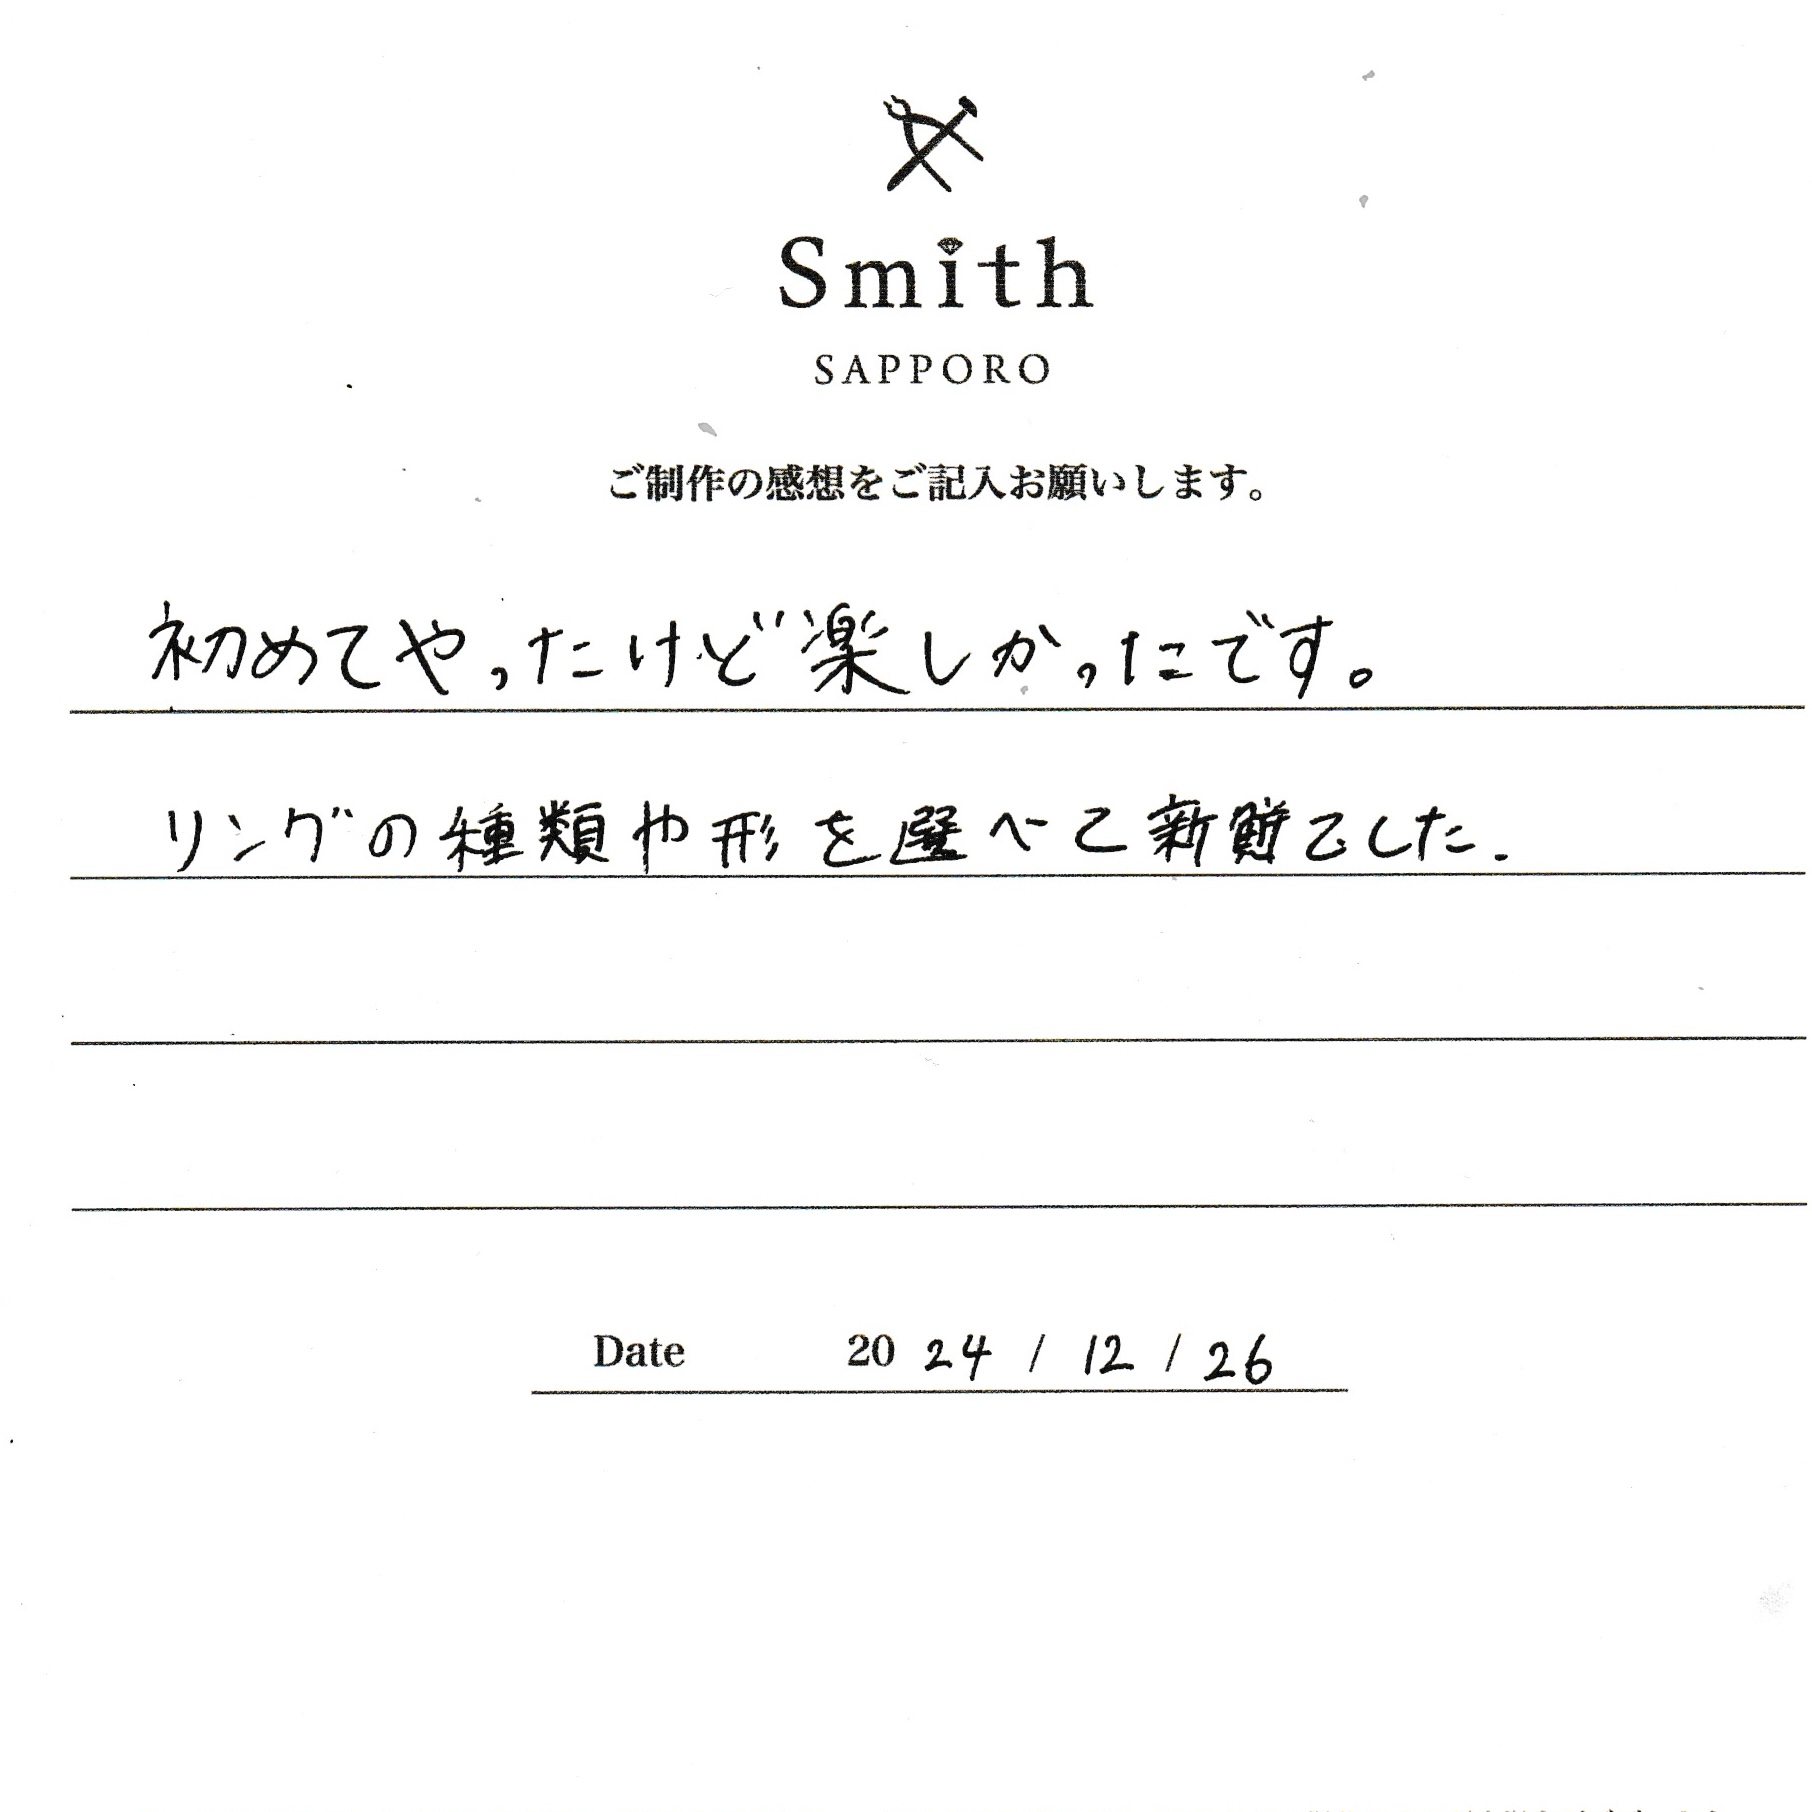 Smith
SAPPORO
ご制作の感想をご記入お願いします。
初めてやったけど楽しかったです。
リングの種類や形を選べて新鮮でした.
Date 2024 / 12 / 26